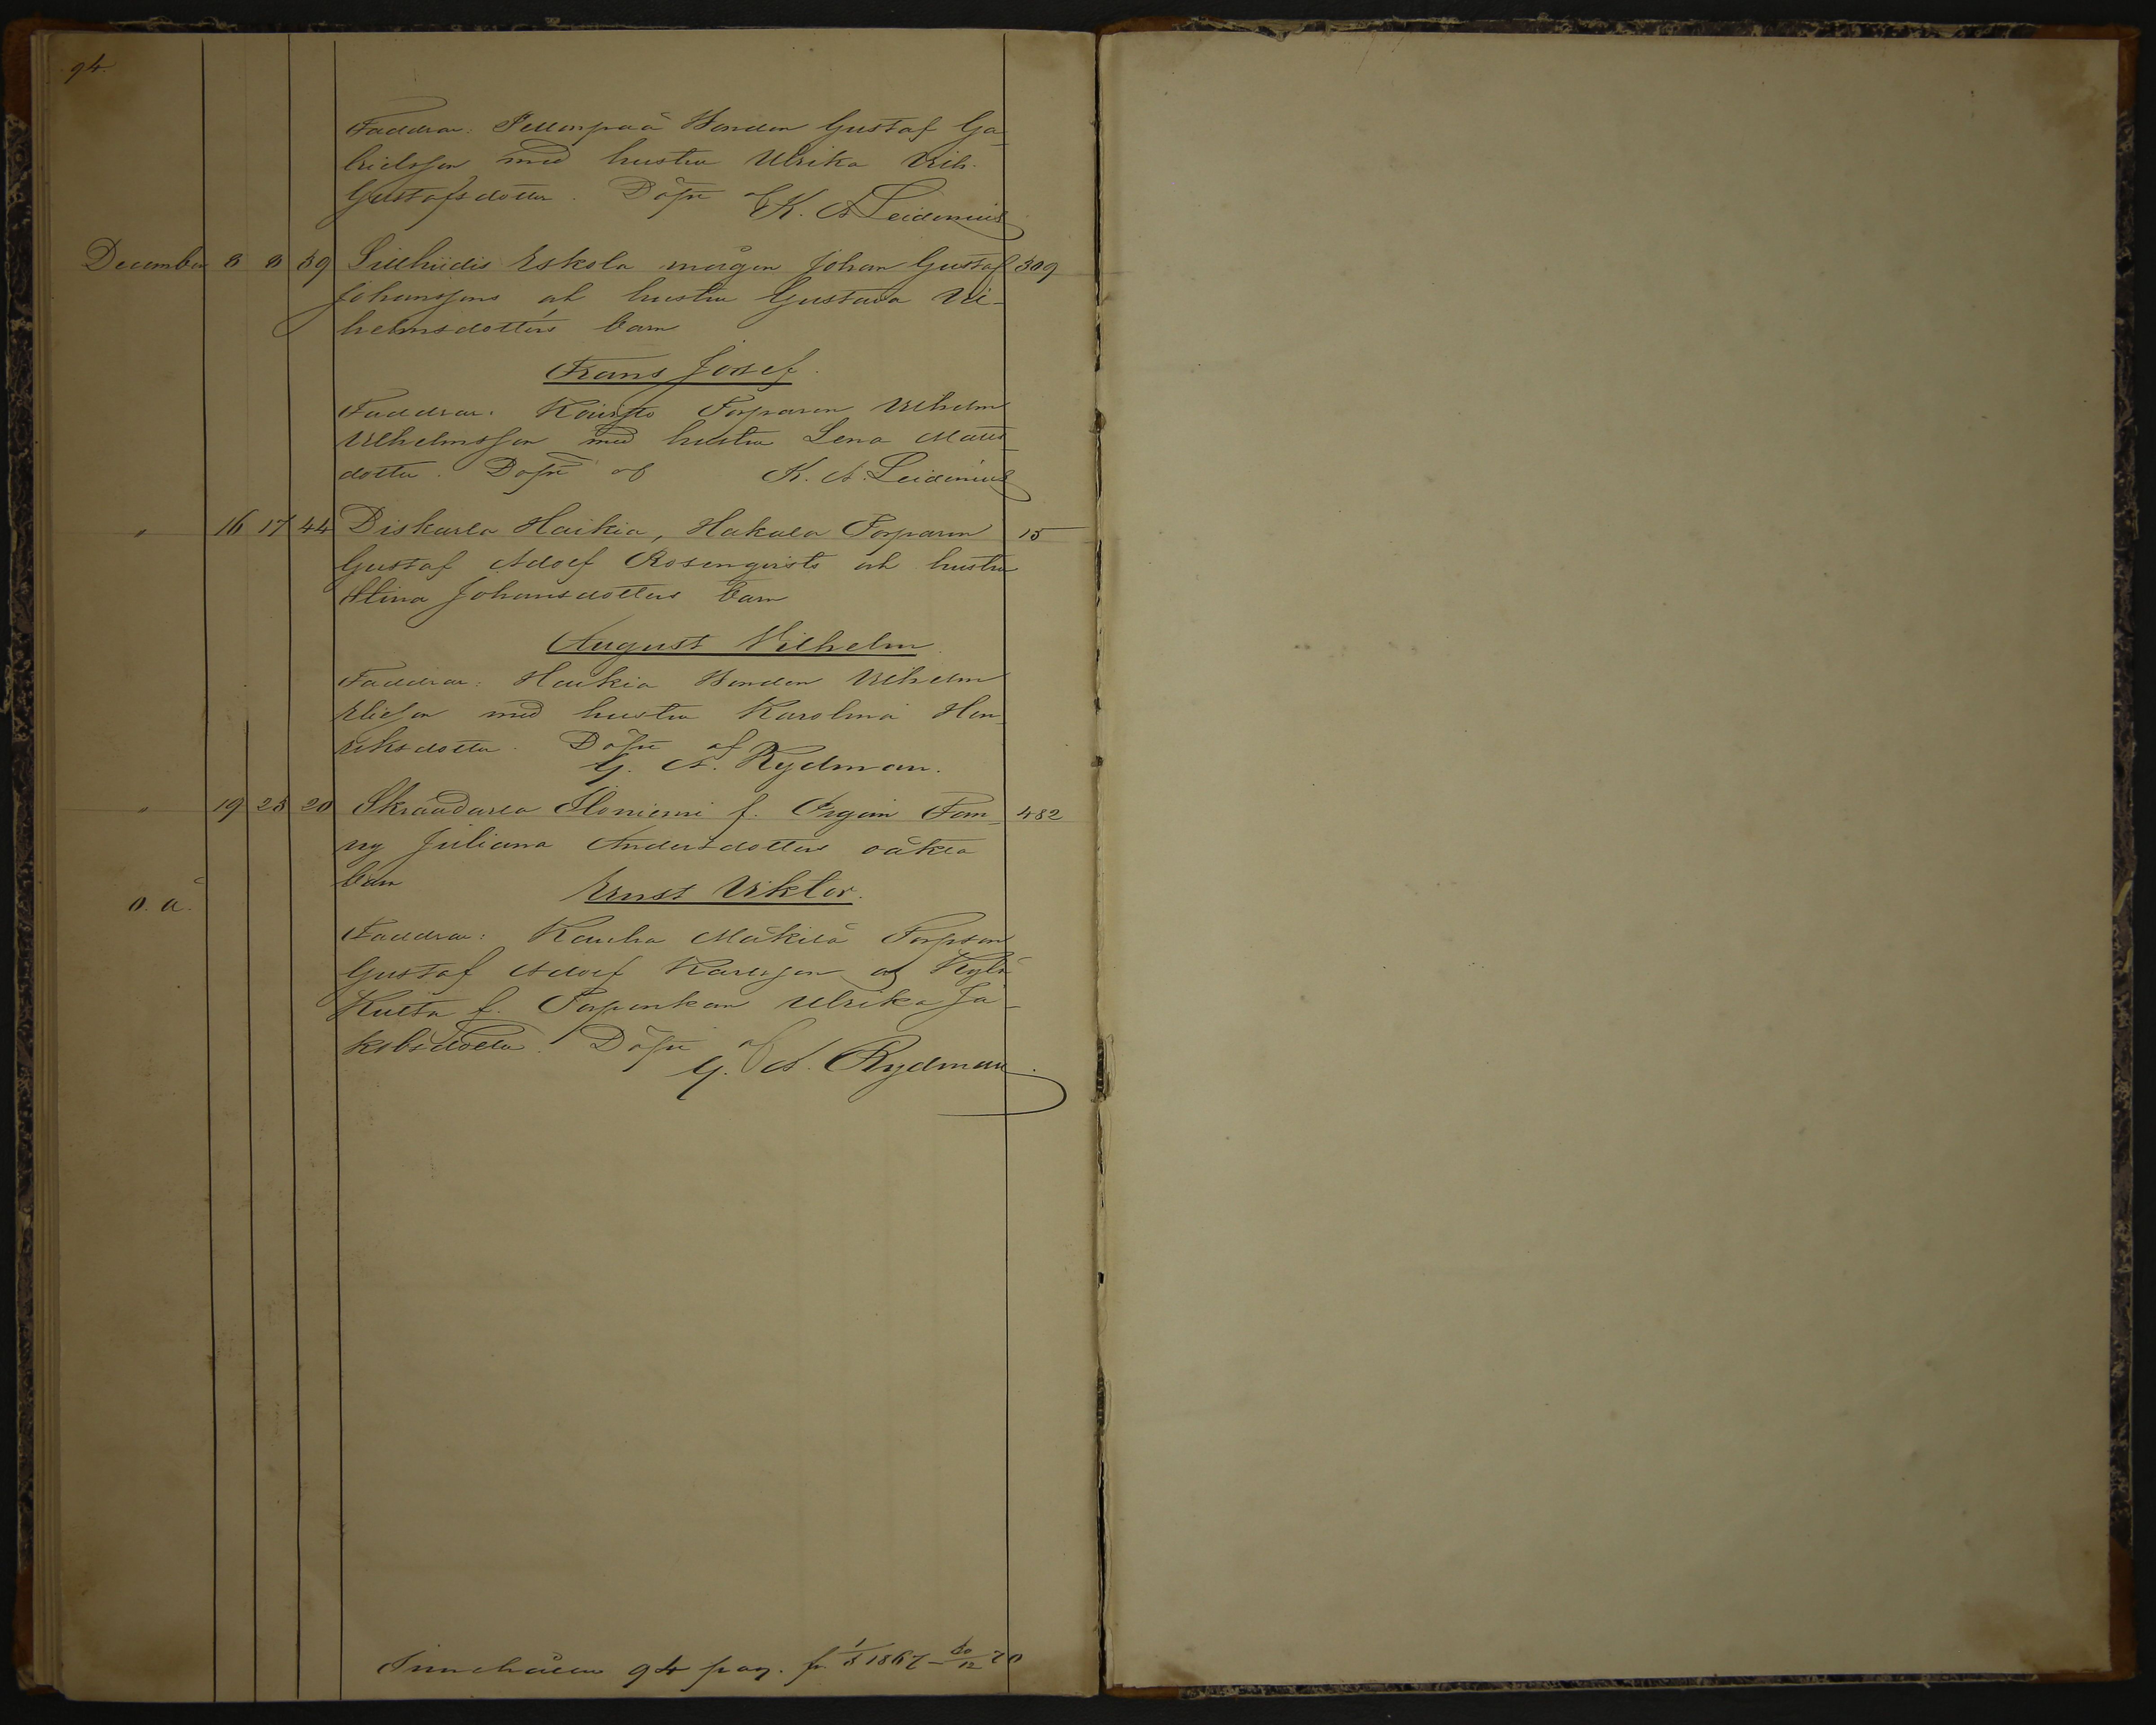 94.
Faddrar: Pellonpää Bonden Gustaf Ga-
brielsson med hustru Ulrika Vilh.
Gustafsdotter. Döpt af K. A. Leidenius
December 8 8 39 Sillhiidis Eskola mågen Johan Gustaf 309
Johanssons och hustru Gustava Vil-
helmsdotters barn
Frans Josef.
Faddrar: Koivisto Torparen Vilhelm
Vilhelmsson med hustru Lena Matts-
dotter. Döpt af K. A. Leidenius
" 16 17 44 Diskarla Haikia, Hakala Torparen 15
Gustaf Adolf Rosenqvists och hustru
Stina Johansdotters barn
August Vilhelm.
Faddrar: Haikia Bonden Vilhelm
Eliesson med hustru Karolina Hen-
riksdotter. Döpt af
G. A. Rydman.
" 19 25 20 Skräddarla Iloniemi f. Pigan Fan- 482
ny Juliana Andersdotters oäkta
barn
o. ä. Ernst Viktor.
Faddrar: Mäkilä Torpson
Gustaf Adolf Karlsson och Kylä
f. Ulrika Ja-
kobsdotter. Döpt af
G. A. Rydman.
Innehåller 94 pag. fr. 1/5 1867 – 30/12 70